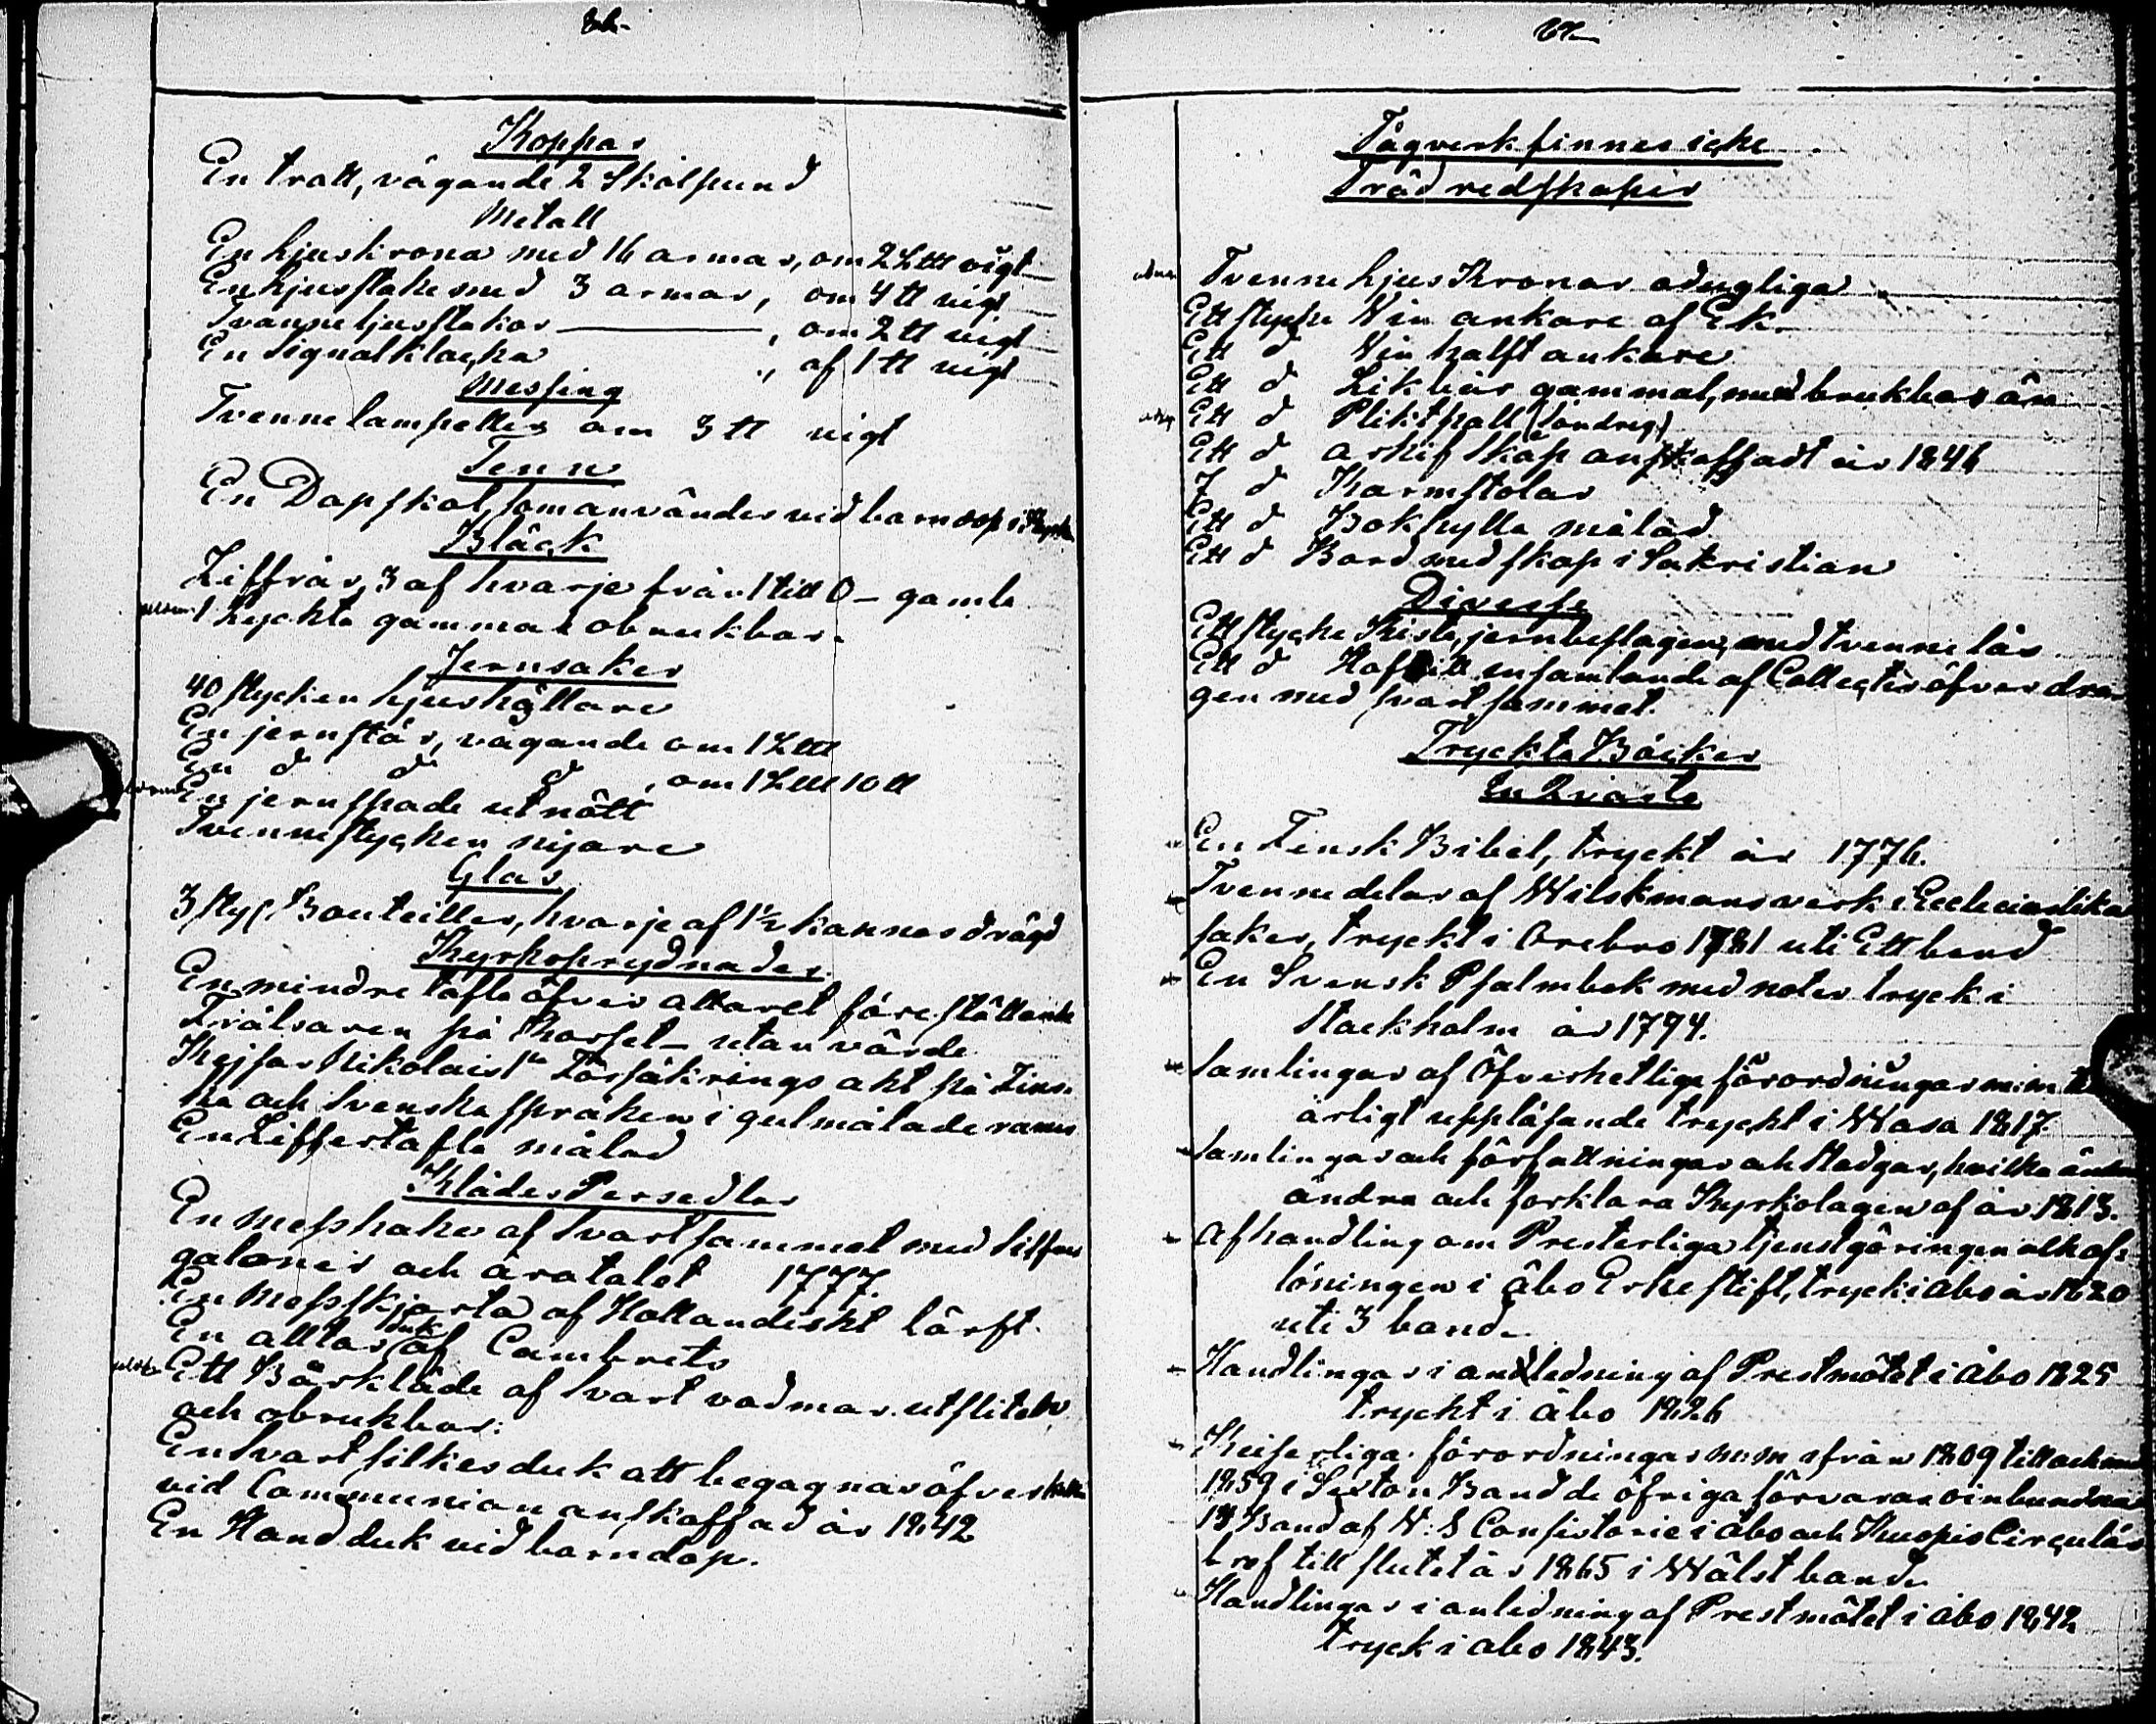 Koppar
En tratt, vägande 2 Skålpund
Metall
En ljuskrona med 16 armar, om 2 L℔ vigt
En ljusstake med 3 armar, om 4 ℔ vigt
Tvänne ljusstakar — , om 2 ℔ vigt
En Signalklocka ., af 1 ℔ vigt
Messing
Tvenne lampetter om 3 ℔ vigt
Tenn
En Dopskål, som användes vid barndop i
Bläck
Ziffror, 3 af hvarje från 1 till 0 – gamla
1 Lyckta gammal obrukbar.
Jernsaker
40 stycken ljushållare
En jernstör, vägande om 1 L℔
En d d d , om 1 L℔ 10 ℔
En jernspade utnött
Tvenne stycken nijare
Glas
3 styc. Bouteiller, hvarje af 1½ kannas drägd
Kyrkoprydnader
En mindre tafla öfver altaret föreställande
Frälsaren på Korset – utan värde
Kejsar Nikolai 1ns Försäkrings akt på Fins-
ka och Svenska språken i gulmålade ramar
En Ziffertafla målad
Kläder Persedlar
En Messhake af Svart sammet med silfver
galoner och åratalet 1777.
En Messskjorta af Hollandeskt lärft.
duk
En alltar af Cambrets
Ett Bårkläde af Svart vadmar. utsliten
och obrukbar.
En Svart silkesduk att begagnas öfver
vid Communion anskaffad år 1842
En Handduk vid barndop.
67
Tågverk finnes icke
Trädredskaper
Tvenne ljus Kronor odugliga
Ett stycke Vin ankare af Ek.
Ett d Vin halft ankare
Ett d Likbår gammal, med brukbar än
Ett d Pliktpall (söndrig)
Ett d arkif Skåp anskaffadt år 1846
7 d Karmstolar
Ett d Bokhylla målad
Ett d Bord med skåp i Sakristian
Diverse
Ett stycke Kista, jernbeslagen, med tvenne lås
Ett d Håf till insamlande af Collecter öfverdra-
gen med svart sammet.
Tryckta Böcker
In Qvarto
En Finsk Bibel, tryckt år 1776.
Tvenne delar af Wilskmans verk i Ecclesiastika
saker, tryckt i Örebro 1781 uti Ett band
En Svensk Psalmbok med noter tryck i
Stockholm år 1794.
Samlingar af Öfverhetliga förordningar m:m: till
årligt uppläsande tryckt i Wasa 1817.
Samlingar och författningar och Stadgar, hvilka
ändra och förklara Kyrkolagen af år 1813.
Afhandling om Presterliga tjenstgöringen och af-
löningen i Åbo Erke stift, tryck i Åbo år 1820
uti 3 band.
Handlingar i anledning af Prestmötet i Åbo 1825
tryckt i Åbo 1826
Keiserliga förordningar m:m ifrån 1809 till och med
1859 i Sexton Band de öfriga förvaras oinbundna
Band af V: S Consistorie i Åbo och Kuopio Circulär
bref till slutet år 1865 i Wälst band
Handlingar i anledning af Prestmötet i Åbo 1842
tryck i Åbo 1843.